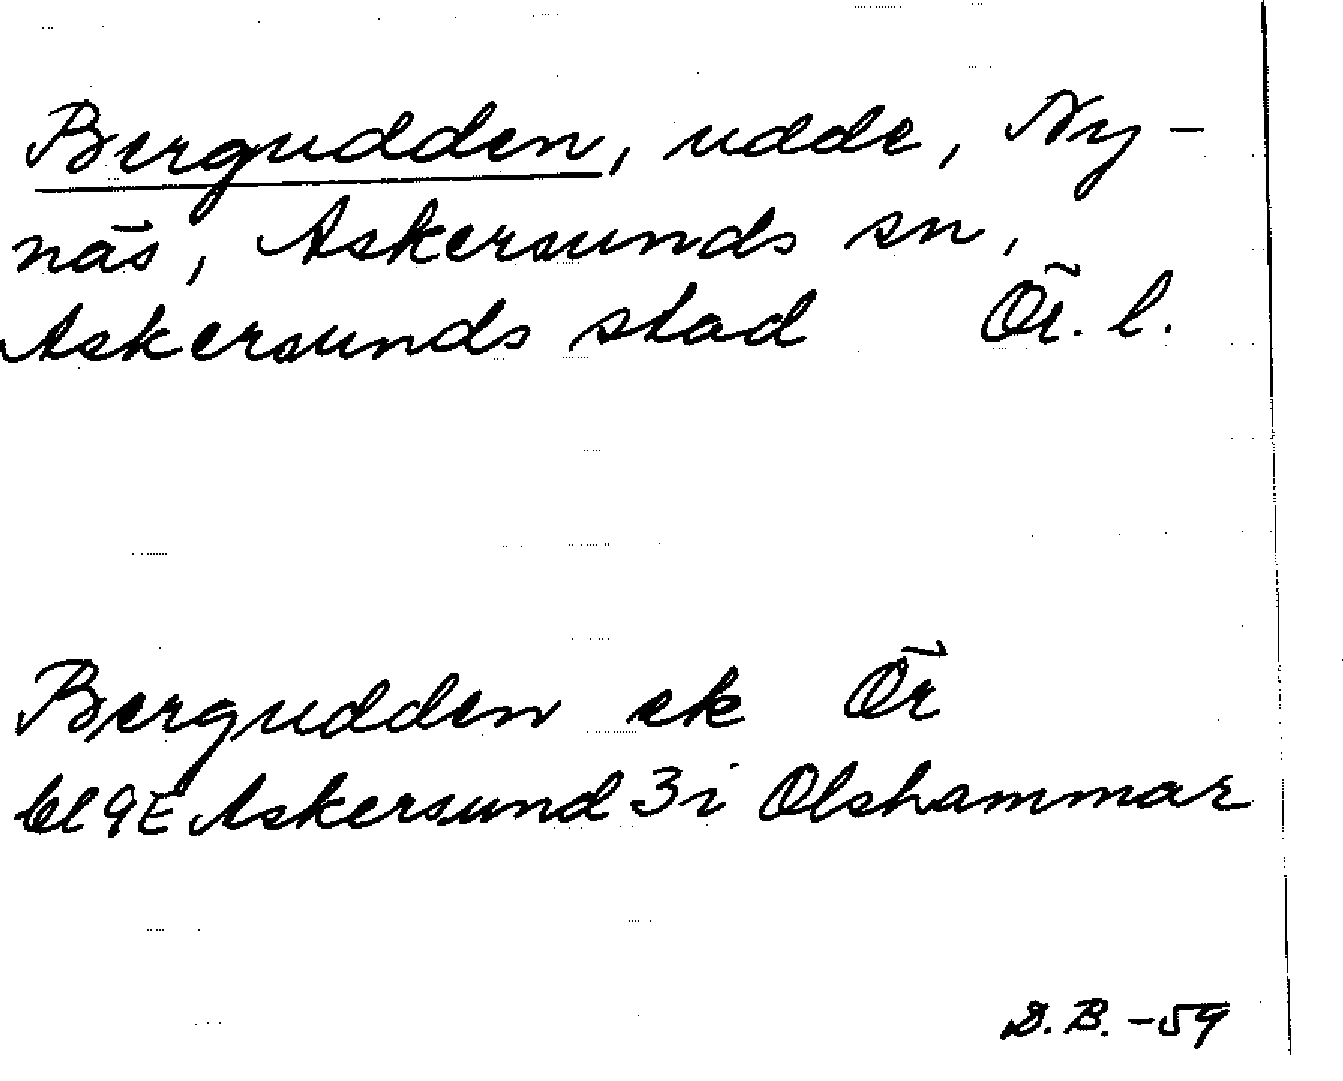 Bergudden, udde, Ny-
näs, Askersunds sn,
Askersunds stad Ör. l.
Bergudden ek Ör
bl 9E Askersund 3i Olshammar
D.B. -59